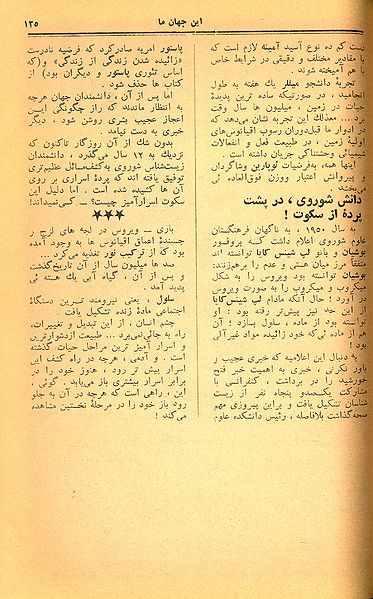 این جهان ما
۱۲۵
دست کم ده نوع آسید آمینه لازم است که
با مقادیر مختلف و دقیقی در شرایط خاص
با هم آمیخته شوند .
تجربهٔ دانشجو میللر یک هفته به طول
انجامید ، در صورتیکه ساده ترین پدیدهٔ
حیات در زمین ، میلیون ها سال وقت
برد ... معذلك این تجربه نشان می‌دهد که
در ادوار ما قبل‌دوران رسوب اقیانوس‌های
اولیهٔ زمین ، در طبیعت فعل و انفعالات
شیمیایی وحشتناکی جریان داشته است .
اینها همه، به‌فرضیات اوپارین وشاگردان
و پیروانش اعتبار ووزن فوق‌العاده ئی
می‌بخشد
دانش شوروی ، در پشت
پردهٔ از سکوت !
به سال ۱۹۵۰ ، به ناگهان فرهنگستان
علوم شوروی اعلام داشت کـه پروفسور
بوشیان و بانو لپ شینس کایا توانسته اند
متفقاً مرز میان هستی و عدم را برهم‌زنند:
بوشیان توانسته بود ویروس را به شکل
میکروب و میکروب را به صورت ویروس
در آورد ؛ حال آنکه مادام لپ شینس‌کایا
از این حد نیز پیش‌تر رفته بود : او
توانسته بود از ماده ، سلول بسازد ؛ آن
هم از ماده ئی که خود زائیده مواد غیرآلی
بود !
به دنبال این اعلامیه که خبری عجیب و
باور نکرنی ، خبری به اهمیت خبر فتح
خورشید را در برداشت ، کنفرانسی با
مشارکت یکصدو پنجاه نفر از زیست
شناسان تشکیل یافت و براین پیروزی مهم
صحه‌گذاشت بلافاصله ، رئیس دانشکده علوم
پاستور امریه صادرکرد که فرضیه نادرست
«زائیده شدن زندگی از زندگی» و(که
اساس تئوری پاستور و دیگران بود) از
کتاب ها حذف شود .
اما پس از آن ، دانشمندان جهان هرچه
به انتظار ماندند که راز چگونگی ایـن
اعجاز عجیب بشری روشن شود ، دیگر
خبری به دست نیامد .
بدون شك از آن روزگار تاکنون که
نزدیك به ۱۲ سال می‌گذرد ، دانشمندان
زیست‌شناس شوروی به‌کشف‌مسائل عظیم‌تری
توفیق یافته اند که پردهٔ اسراری بر روی
آن ها کشیده شده است . اما دلیل این
سکوت اسرارآمیز چیست؟ – کسی‌نمیداند!
★★★
باری – ویروس در لجه های لزج و
چسبندهٔ اعماق اقیانوس ها به وجود آمده
بود که از ترکیب نور تغذیه می‌کرد ...
بعد ها میلیون سال از آن تاریخ‌گذشت
و پس از آن ، گیاه آبی یك هسته ئی
پدید آمد .
سلول ، یعنی نیرومند ترین دستگاه
اجتماعی مادهٔ زنده تشکیل یافت .
چشم انسان ، از این تبدیل و تغییرات،
راه به جائی‌نمی‌برد... طبیعت ازدشوارترین
و اسرار آمیز ترین مراحل حیات گذشته
است . و آدمی ، هرچه در راه کشف این
اسرار پیش تر رود ، هنوز خود را در
برابر اسرار بیشتری باز می‌یابد . گوئی ،
این ، راهی است که هرچه در آن به جلو
رود باز خود را در مرحلهٔ نخستین مشاهده
می‌کند !